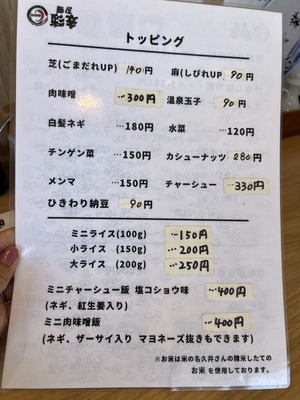 トッピング
芝(ごまだれUP) 140円 麻(しびれUP) 90円
肉味噌 …300円 温泉玉子 90円
白髪ネギ …180円 水菜 …120円
チンゲン菜 …150円 カシューナッツ 280円
メンマ …150円 チャーシュー …330円
ひきわり納豆 90円
ミニライス(100g) …150円
小ライス (150g) …200円
大ライス (200g) …250円
ミニチャーシュー飯 塩コショウ味 …400円
(ネギ、紅生姜入り)
ミニ肉味噌飯 …400円
(ネギ、ザーサイ入り マヨネーズ抜きもできます)
※お米は米の名久井さんの精米したての
お米 を使用しております。